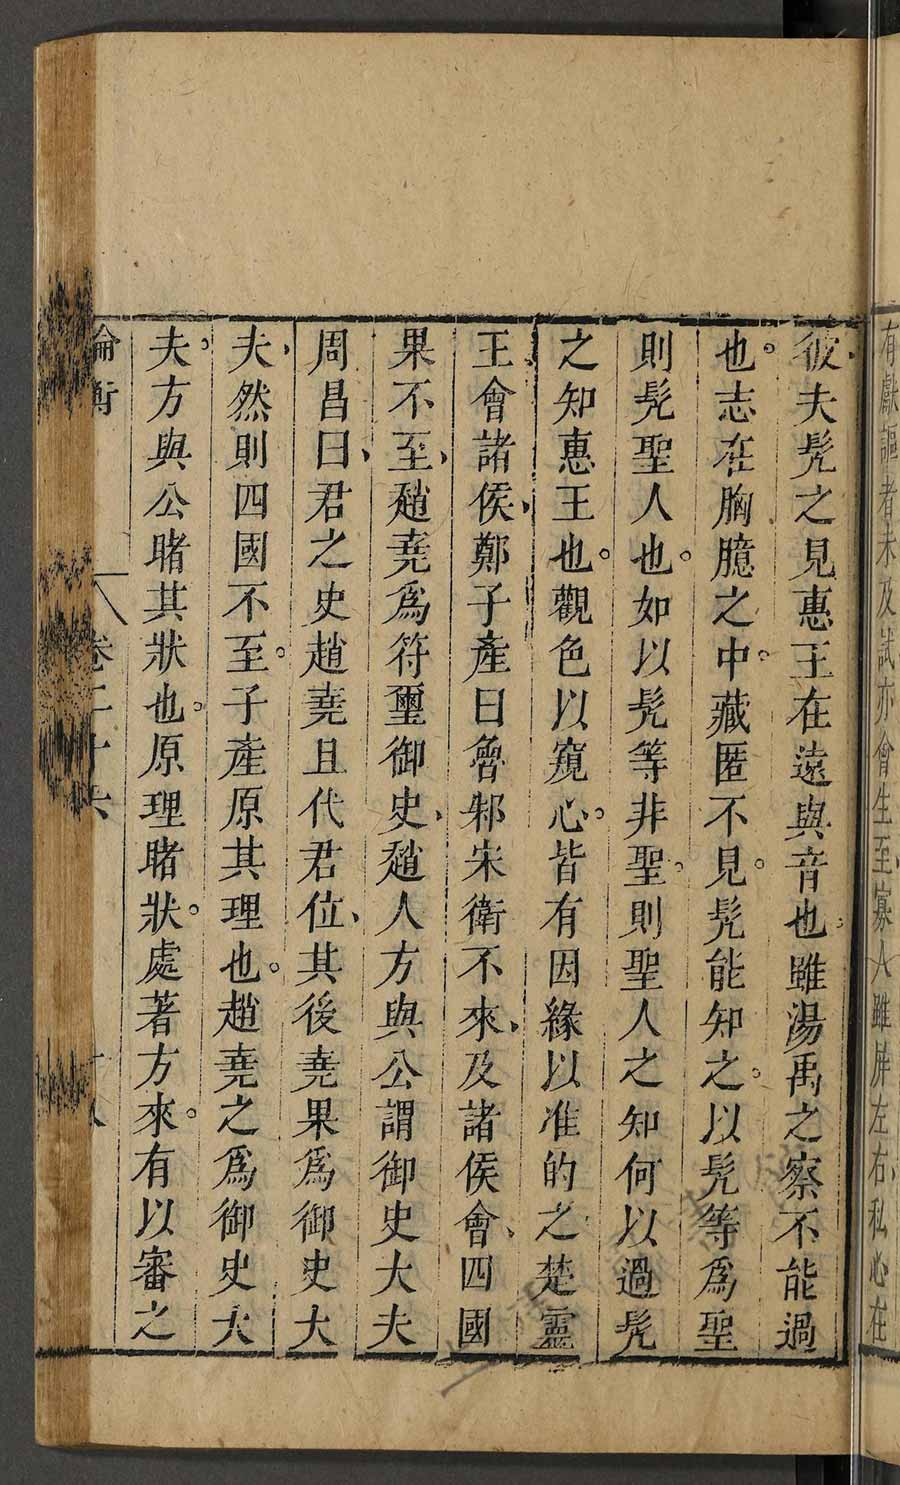 有獻謳者未及試亦會生至寡人雖屏左右私心在
彼夫髡之見惠王在遠與音也雖湯禹之察不能過
也志在胸臆之中藏匿不見髡能知之以髡等爲聖
則髡聖人也如以髡等非聖則聖人之知何以過髡
之知惠王也觀色以窺心皆有因緣以准的之楚靈
王會諸侯鄭子產曰魯邾宋衛不來及諸侯會四國
果不至趙堯爲符璽御史趙人方與公謂御史大夫
周昌曰君之史趙堯且代君位其後堯果爲御史大
夫然則四國不至子產原其理也趙堯之爲御史大
夫方與公睹其狀也原理睹狀處著方來有以審之
論衡 卷二十六